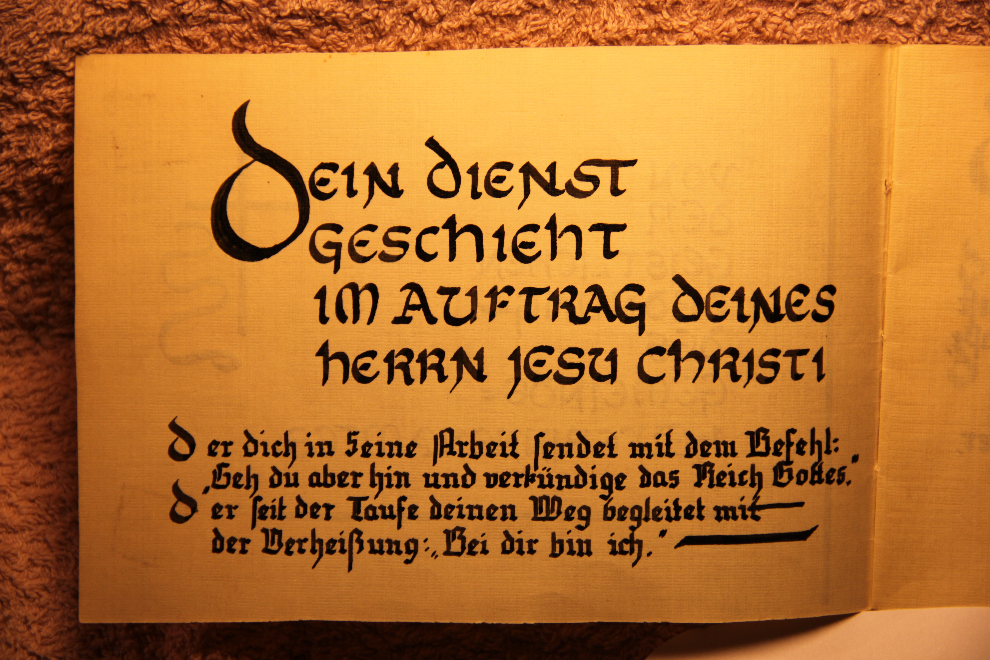 Dein Dienst
geschieht
im Auftrag deines
Herrn Jesu Christi
der dich in Seine Arbeit sendet mit dem Befehl:
„Geh du aber hin und verkündige das Reich Gottes."
der seit der Taufe deinen Weg begleitet mit
der Verheißung: „Bei dir bin ich."